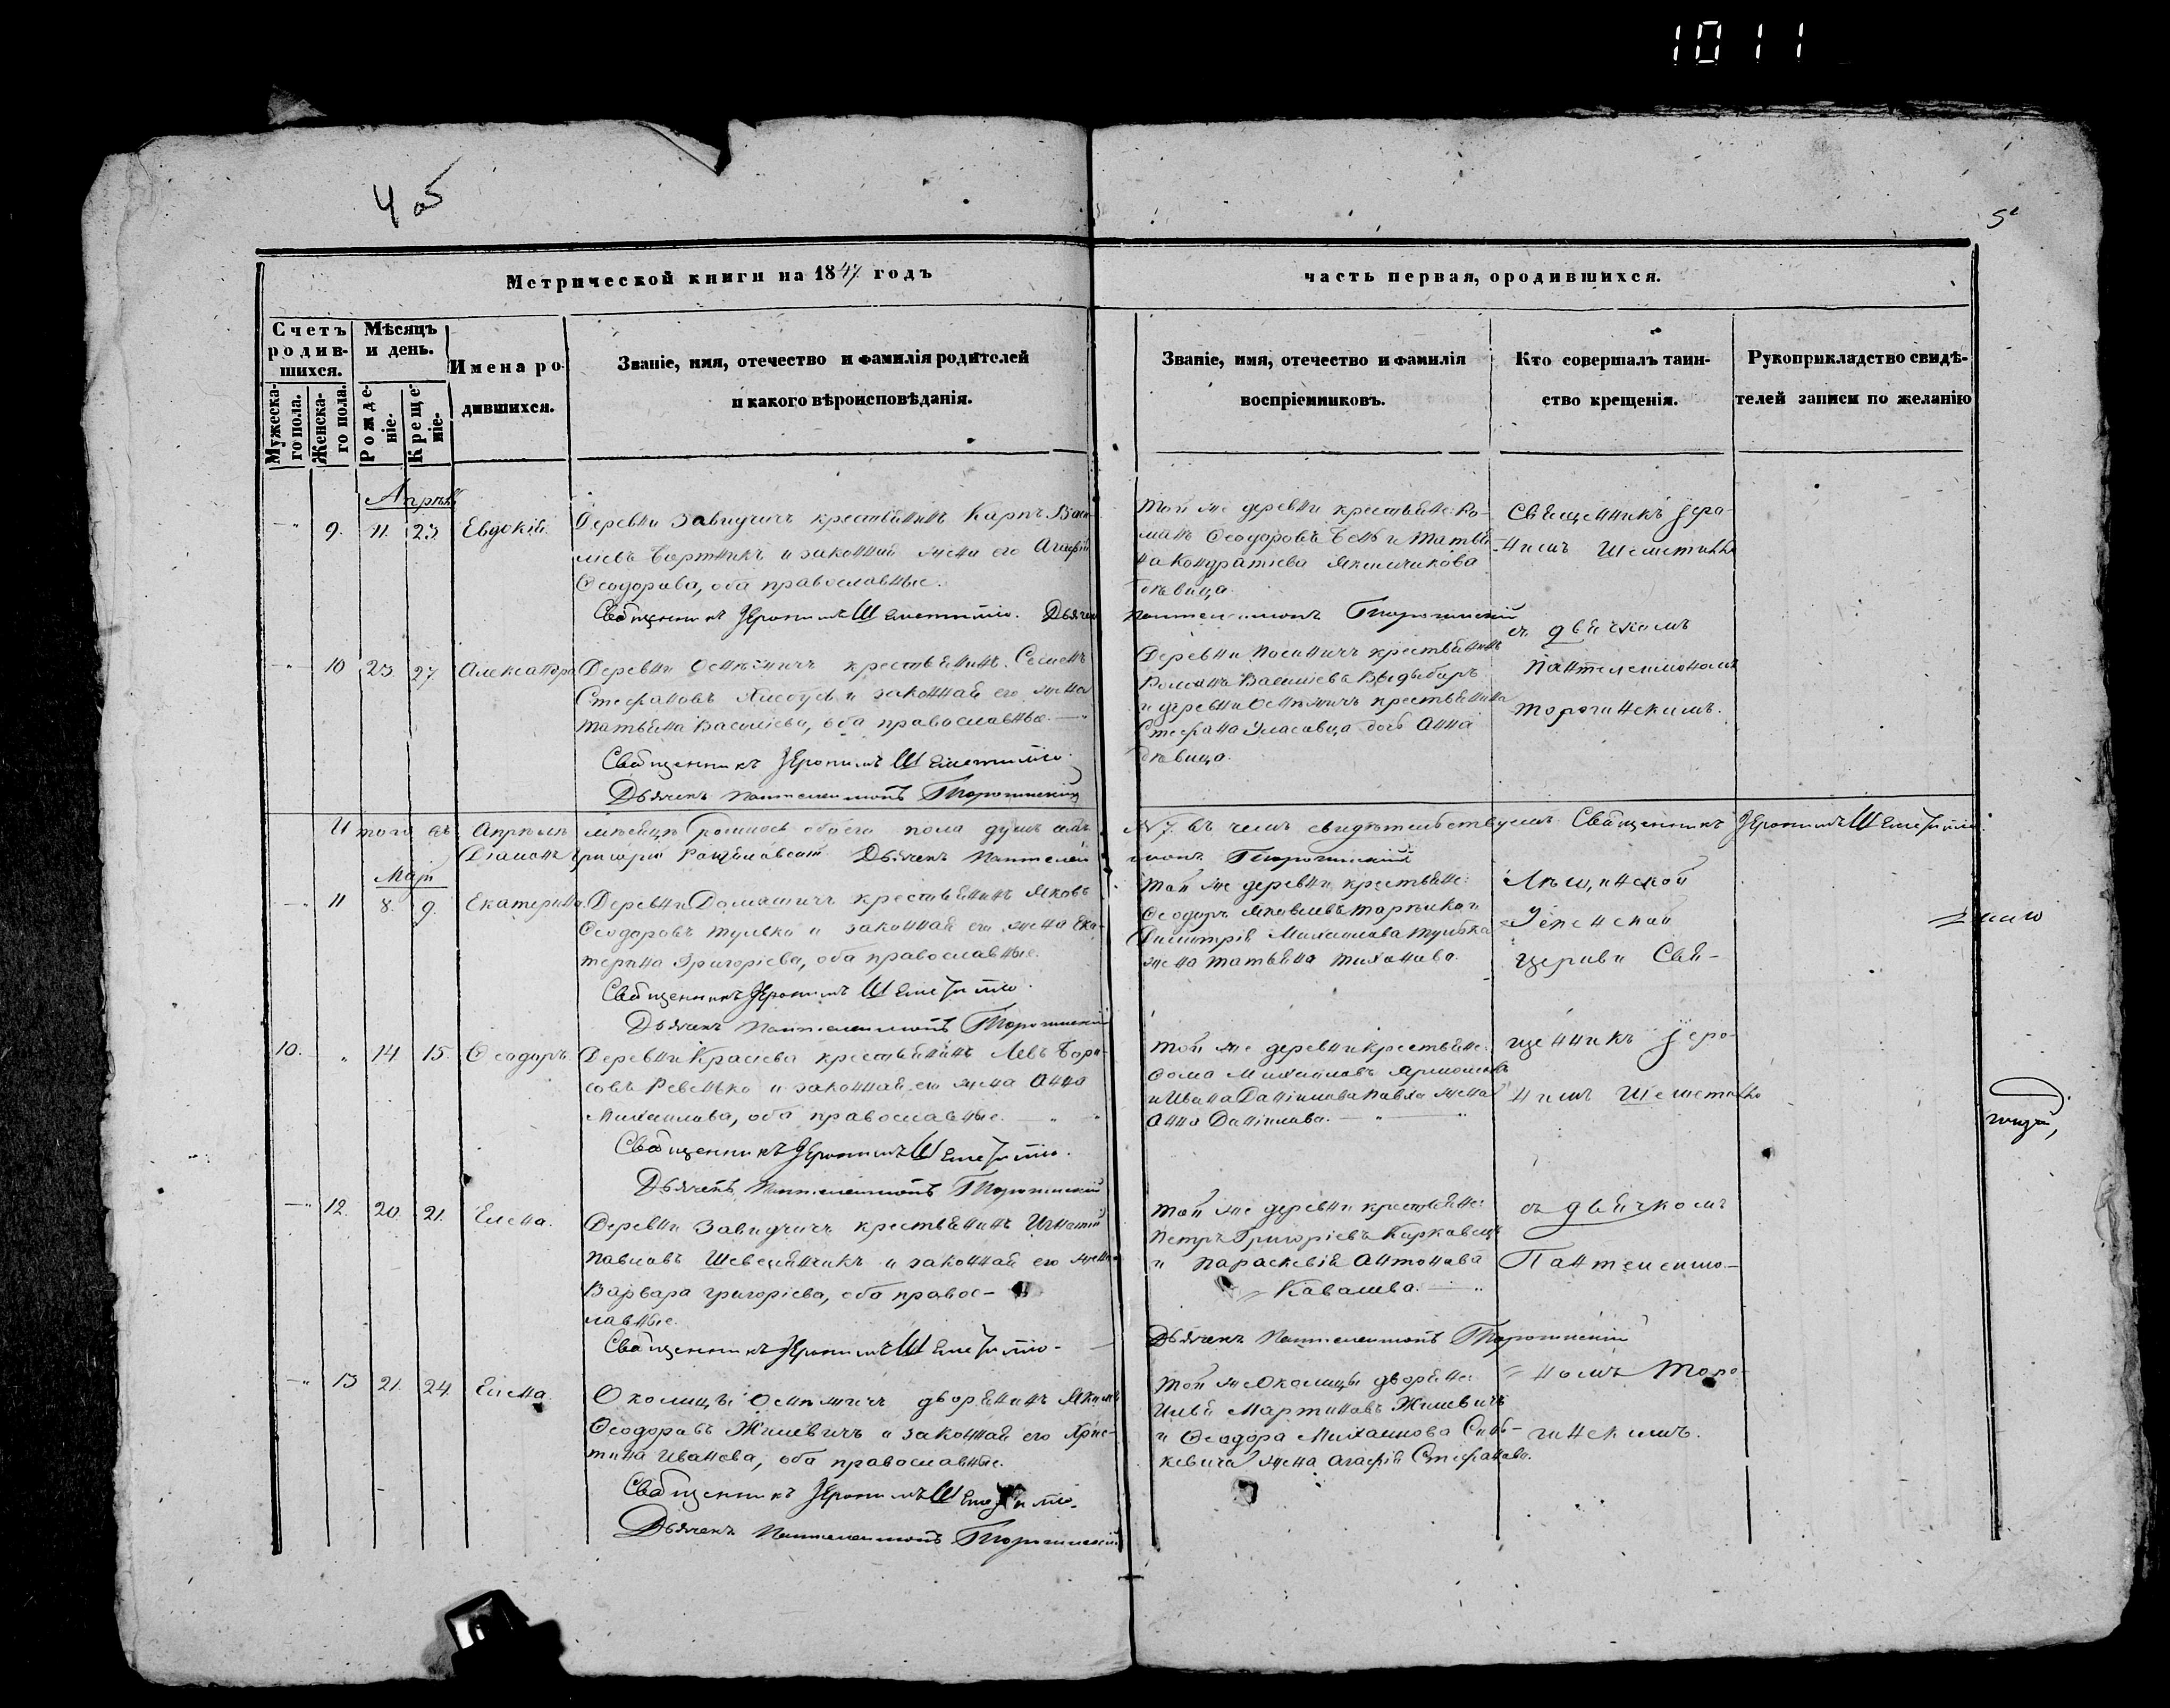 1011
4 об
5
Метрической книги на 1847 годъ
часть первая, ородившихся.
Счетъ родив-шихся.
Мѣсяцъ и день.
Мужеска-го пола.
Женска-го пола.
Рожде-ніе.
Креще-ніе.
Имена ро-
дившихся.
Званіе, имя, отечество и фамилія родителей
и какого вѣроисповѣданія.
Званіе, имя, отечество и фамилія
воспріемниковъ.
Кто совершалъ таин-
ство крещенія.
Рукоприкладство свидѣ-
телей записи по желанію
Апрѣль
9. 11. 23 Евдокія. Деревни Завидчичъ крестьянинъ Карпъ Васи-
льевъ Бортникъ и законная жена его Агафія
Ѳеодорова, оба православные.
Священникъ Іеронимъ Шеметилло. Дьячекъ
Той же деревни крестьяне: Ро-
манъ Ѳеодоровъ и Татья-
на Кондратіева
дѣвица.
Пантелеимонъ Торочинскій
Священникъ Іеро-
нимъ Шеметилло
10 23. 27 Александра Деревни Осняжичъ крестьянинъ Семенъ
Стефановъ и законная его жена
Татьяна Василіева, оба православные.
Священникъ Іеронимъ Шеметилло.
Дьячекъ Пантелеимонъ Торочинскій
Деревни Посеничъ крестьянинъ
Романъ Василіевъ
и деревни Осняжичъ крестьянина
Стефана дочь Анна
дѣвица.
съ дьячкомъ
Пантелеимономъ
Торочинскимъ.
Итого въ Апрѣлѣ мѣсяцѣ родилось обоего пола душъ семь
№ 7. въ чемъ свидѣтельствуемъ Священникъ Іеронимъ Шеметилло.
Діаконъ Григорій Дьячекъ Пантелеи-
монъ Торочинскій
Май
11 8. 9. Екатерина. Деревни Домашичъ крестьянинъ Яковъ
Ѳеодоровъ Тулько и законная его жена Ека-
терина Григоріева, оба православные.
Священникъ Іеронимъ Шеметилло.
Дьячекъ Пантелеимонъ Торочинскій
Той же деревни крестьяне:
Ѳеодоръ Яковлевъ и
Димитрія Михаилова Тулька
жена Татьяна
Лѣщинской
Успенской
церкви Свя-
10. 14 15. Ѳеодоръ. Деревни Крайново крестьянинъ Левъ Бори-
совъ Ревенько и законная его жена Анна
Михаилова, оба православные.
Священникъ Іеронимъ Шеметилло.
Дьячекъ Пантелеимонъ Торочинскій
Той же деревни крестьяне:
Ѳома Михаиловъ
и Ивана Даніилова жена
Анна Даніилова.
щенникъ Іеро-
нимъ Шеметилло
12. 20. 21. Елена. Деревни Завидчичъ крестьянинъ Игнатій
Павловъ и законная его жена
Варвара Григоріева, оба право-
славные.
Священникъ Іеронимъ Шеметилло.
Той же деревни крестьяне:
Петръ Григоріевъ Карковецъ
и Параскевія Антонова
Ковалева.
Дьячекъ Пантелеимонъ Торочинскій
съ дьячкомъ
Пантелеимо-
13 21. 24 Елена. Околицы Осняжичъ дворянинъ Якимъ
Ѳеодоровъ Жилевичъ и законная его Хрис-
тина Иванова, оба православные.
Священникъ Іеронимъ Шеметилло.
Дьячекъ Пантелеимонъ Торочинскій
Той же Околицы дворяне:
Илья Мартиновъ Жилевичъ
и Ѳеодора Михаилова
жена Агафія Стефанова.
номъ Торо-
чинскимъ.